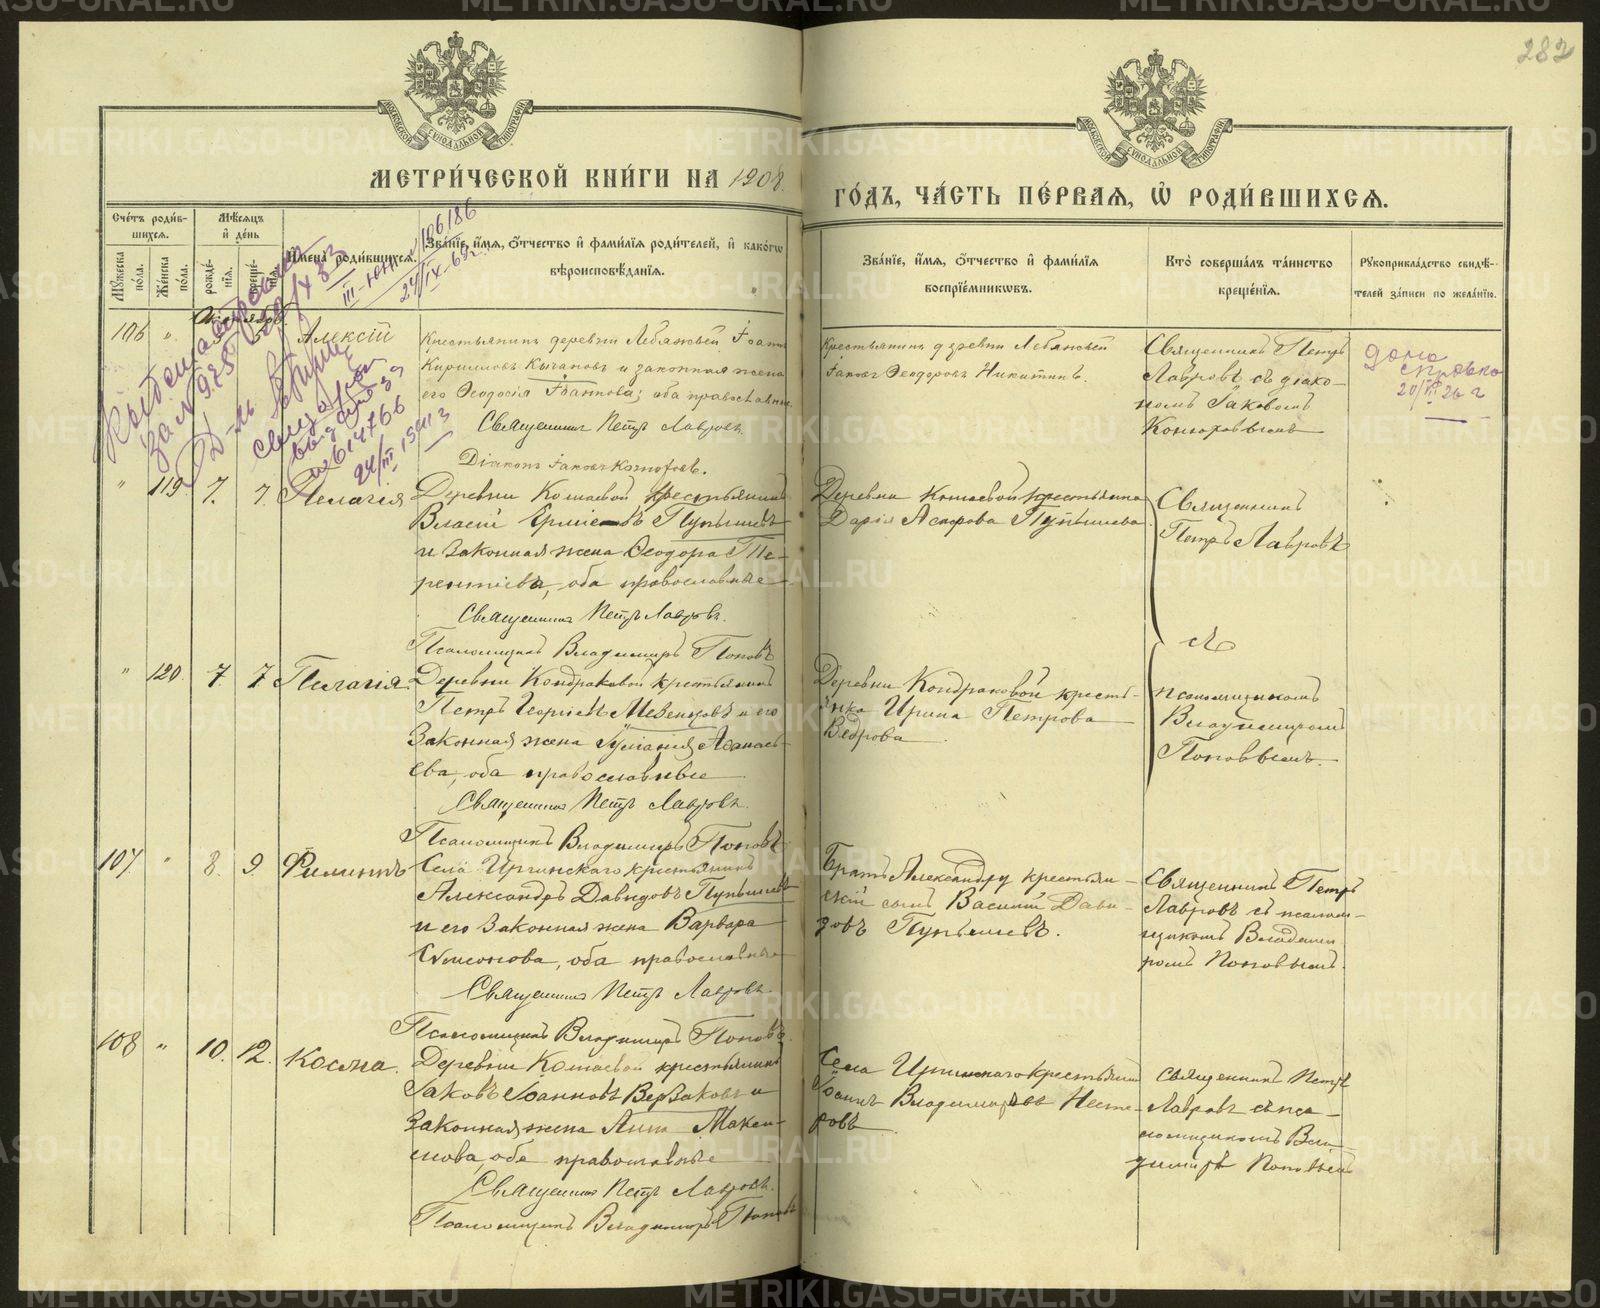 282
МОСКОВСКОЙ СѴНОДАЛЬНОЙ ТИПОГРАФІИ
МОСКОВСКОЙ СѴНОДАЛЬНОЙ ТИПОГРАФІИ
МЕТРИ́ЧЕСКОЙ КНИ́ГИ НА 1908
ГО́ДЪ, ЧА́СТЬ ПЕ́РВАЯ, Ѡ҆ РОДИ́ВШИХСЯ.
Сче́тъ роди́в-
шихся.
Мѣ́сяцъ
и҆ де́нь
Мꙋ́жеска по́ла.
Же́нска по́ла.
рожде́-
нїя.
креще́-
нїя.
И҆мена̀ роди́вшихся.
Зва́нїе, и҆́мя, ѻ҆́тчество и҆ фами́лїя роди́телей, и҆ како́гѡ
вѣроисповѣ́данїя.
Зва́нїе, и҆́мя, ѻ҆́тчество и҆ фами́лїя
воспрїе́мникѡвъ.
Кто̀ соверша́лъ та́инство
креще́нїя.
Рꙋкоприкла́дство свидѣ́-
телей за́писи по жела́нїю.
106186
24/IX-69г.
III-ЮНII
№ 614766
24/III 1943
106 " Алексій
Крестьянинъ деревни Лебяжьей Іоаннъ
Кирилловъ Кычановъ и законная жена
его Ѳеодосія Іоаннова; оба православные.
Священникъ Петръ Лавровъ.
Діаконъ Іаковъ Конюховъ.
Крестьянинъ деревни Лебяжьей
Іаковъ Ѳеодоровъ Никитинъ.
Священникъ Петръ
Лавровъ съ діако-
номъ Іаковомъ
Конюховымъ
дана
справка
20/III 26 г
" 119 7. 7. Пелагія
Деревни Кошаевой крестьянинъ
Власій Ермиевъ Пупышевъ
и законная жена Ѳеодора Те-
рентіева, оба православные
Священникъ Петръ Лавровъ.
Псаломщикъ Владимиръ Поповъ
Деревни Кошаевой крестьянка
Дарія Пупышева
Священникъ
Петръ Лавровъ
съ
" 120. 7. 7 Пелагія.
Деревни Кондраковой крестьянинъ
Петръ Георгіевъ Мезенцовъ и его
законная жена Іуліанія Аѳанась-
ева, оба православные
Священникъ Петръ Лавровъ.
Псаломщикъ Владимиръ Поповъ
Деревни Кондраковой кресть-
янка Ирина Петрова
Ведрова
псаломщикомъ
Владимиромъ
Поповымъ.
107 " 8. 9. Филиппъ
Села Иргинскаго крестьянинъ
Александръ Давидовъ Пупышевъ
и его законная жена Варвара
Симонова, оба православные
Священникъ Петръ Лавровъ.
Псаломщикъ Владимиръ Поповъ.
Братъ Александру крестьян-
скій сынъ Василій Дави-
довъ Пупышевъ.
Священникъ Петръ
Лавровъ съ псалом-
щикомъ Владими-
ромъ Поповымъ.
108 " 10. 12. Косма.
Деревни Кошаевой крестьянинъ
Іаковъ Іоанновъ Верзаковъ и
законная жена Анна Макси-
мова, оба православные
Священникъ Петръ Лавровъ.
Псаломщикъ Владимиръ Поповъ
Села Иргинскаго крестьянинъ
Іоаннъ Владимировъ Несте-
ровъ
Священникъ Петръ
Лавровъ съ пса-
ломщикомъ Вла-
димиръ Поповымъ